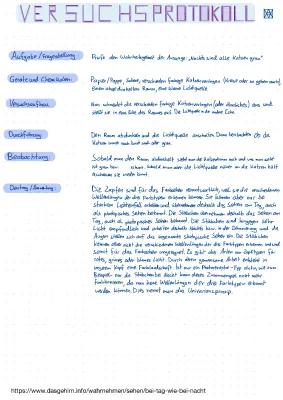 VERSUCHSPROTOKOLL
Aufgabe / Fragestellung
Prüfe den Wahrheitsgehalt der Aussage „Nachts sind alle Katzen grau“
Geräte und Chemikalien:
Papier / Pappe, Schere, verschieden farbige Katzenvorlagen
einen abdunkelbaren Raum, eine kleine Lichtquelle
Versuchsaufbau
Man schneidet die verschieden farbige Katzenvorlagen (oder ähnliches) aus und
stellt sie in eine Ecke des Raumes auf. Die Lichtquelle in die andere Ecke.
Durchführung
Den Raum abdunkeln und die Lichtquelle einschalten. Dann beobachten ob die
Katzen immer noch bunt oder grau.
Beobachtung:
Sobald man den Raum abdunkelt sieht man die Katzenformen noch und
Sobald man aber die Lichtquelle näher an die Katzen hält
Deutung
Die Zapfen sind für das Farbsehen verantwortlich, weil sie die verschiedenen
Wellenlängen der drei Farbtypen erkennen können. Sie können aber nur bei
starkem Lichteinfall arbeiten und übernehmen deshalb das Sehen am Tag, auch
als photopisches Sehen bekannt. Die Stäbchen übernehmen deshalb das Sehen am
Licht empfindlich und arbeiten deshalb Nachts bzw. in der Dämmerung und die
Augen stellen sich auf das sogenannte skotopische Sehen ein. Die Stäbchen
können aber nicht die verschiedenen Wellenlängen der drei Farbtypen erkennen und sind
somit für das Farbsehen ungeeignet. Es gibt drei Arten von Zapfen: für
rotes, grünes oder blaues Licht. Durch deren gemeinsame Arbeit entsteht in
unserem Kopf eine Farblandschaft. Ist nur ein Photorezeptor-Typ aktiv, wie zum
Beispiel nur die Stäbchen kann dieses Zusammenspiel nicht mehr
funktionieren, da nun keine Wellenlängen der drei Farbtypen erkannt
werden können. Dies nennt man das Univarianzprinzip.
https://www.dasgehirn.info/wahrnehmen/sehen/bei-tag-wie-bei-nacht